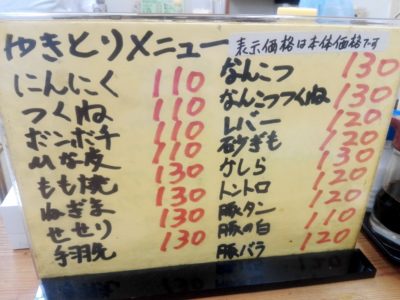 やきとりメニュー
表示価格は本体価格です
にんにく 110
つくね 110
ボンボチ 110
ひな皮 110
もも焼 130
ねぎま 130
せせり 130
手羽先 130
なんこつ 130
なんこつつくね 130
レバー 120
砂ぎも 120
かしら 130
トントロ 120
豚タン 120
豚の白 110
豚バラ 120